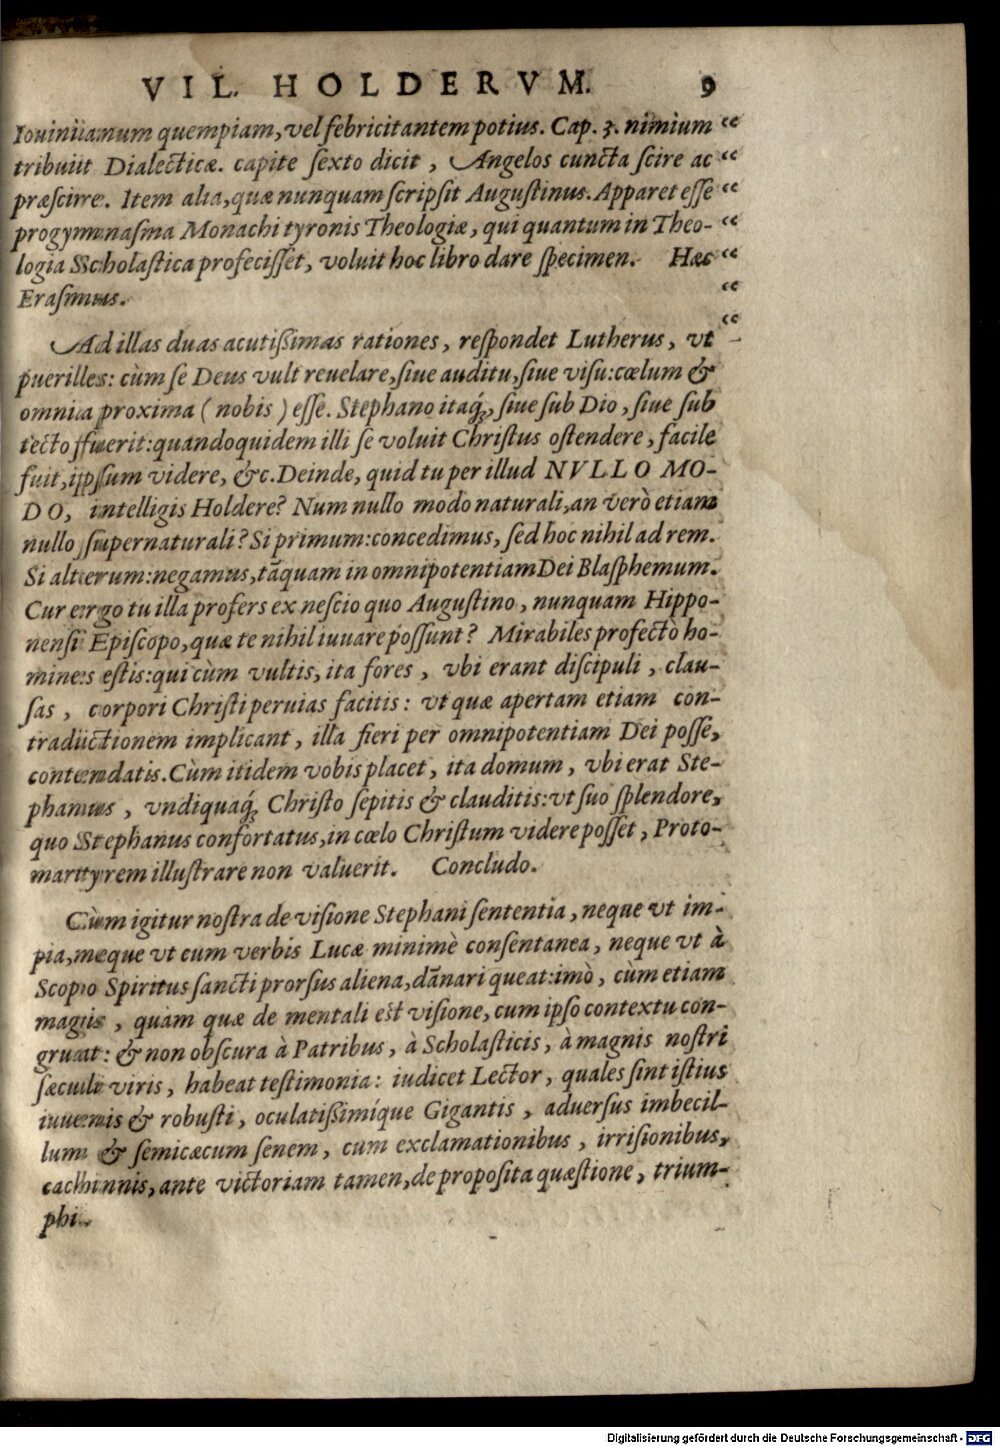 VIL. HOLDERVM. 9
Iouinianum quempiam, vel febricitantem potius. Cap. 3. nimium “
tribuit Dialecticæ. capite ſexto dicit, Angelos cuncta ſcire ac “
præſcire. Item alia, quæ nunquam ſcripſit Auguſtinus. Apparet eſſe “
progymnaſma Monachi tyronis Theologiæ, qui quantum in Theo- “
logia Scholaſtica profeciſſet, voluit hoc libro dare ſpecimen. Hæc “
Eraſmus. “
Ad illas duas acutißimas rationes, reſpondet Lutherus, vt “
pueriles: cùm ſe Deus vult reuelare, ſiue auditu, ſiue viſu: cœlum &
omnia proxima ( nobis ) eſſe. Stephano itaq́;, ſiue ſub Dio, ſiue ſub
tecto fuerit: quandoquidem illi ſe voluit Chriſtus oſtendere, facile
fuit, ipſum videre, &c. Deinde, quid tu per illud NVLLO MO-
DO, intelligis Holdere? Num nullo modo naturali, an verò etiam
nullo ſupernaturali? Si primum: concedimus, ſed hoc nihil ad rem.
Si alterum: negamus, tãquam in omnipotentiam Dei Blaſphemum.
Cur ergo tu illa profers ex neſcio quo Auguſtino, nunquam Hippo-
nenſi Epiſcopo, quæ te nihil iuuare poſſunt? Mirabiles profectò ho-
mines eſtis: qui cùm vultis, ita fores, vbi erant diſcipuli, clau-
ſas, corpori Chriſti peruias facitis: vt quæ apertam etiam con-
tradictionem implicant, illa fieri per omnipotentiam Dei poſſe,
contendatis. Cùm itidem vobis placet, ita domum, vbi erat Ste-
phanus, vndiquaq́; Chriſto ſepitis & clauditis: vt ſuo ſplendore,
quo Stephanus confortatus, in cœlo Chriſtum videre poſſet, Proto-
martyrem illuſtrare non valuerit. Concludo.
Cùm igitur noſtra de viſione Stephani ſententia, neque vt im-
pia, neque vt cum verbis Lucæ minimè conſentanea, neque vt à
Scopo Spiritus ſancti prorſus aliena, dãnari queat: imò, cùm etiam
magis, quam quæ de mentali eſt viſione, cum ipſo contextu con-
gruat: & non obſcura à Patribus, à Scholaſticis, à magnis noſtri
ſæculi viris, habeat teſtimonia: iudicet Lector, quales ſint iſtius
iuuenis & robuſti, oculatißimíque Gigantis, aduerſus imbecil-
lum & ſemicæcum ſenem, cum exclamationibus, irriſionibus,
cachinnis, ante victoriam tamen, de propoſita quæſtione, trium-
phi.
Digitalisierung gefördert durch die Deutsche Forschungsgemeinschaft - DFG